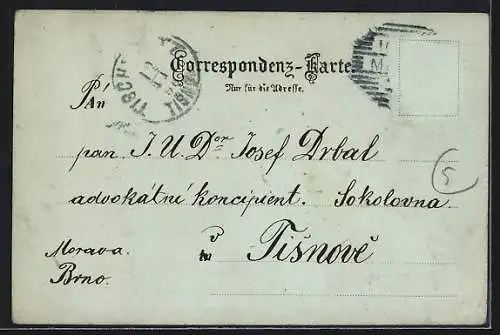 Correspondenz-Karte
Nur für die Adresse.
TISCH
Pán
pan J. U. Dor Josef Drbal
advokátní koncipient. Sokolovna
v
Tišnově
Morava.
Brno.
5